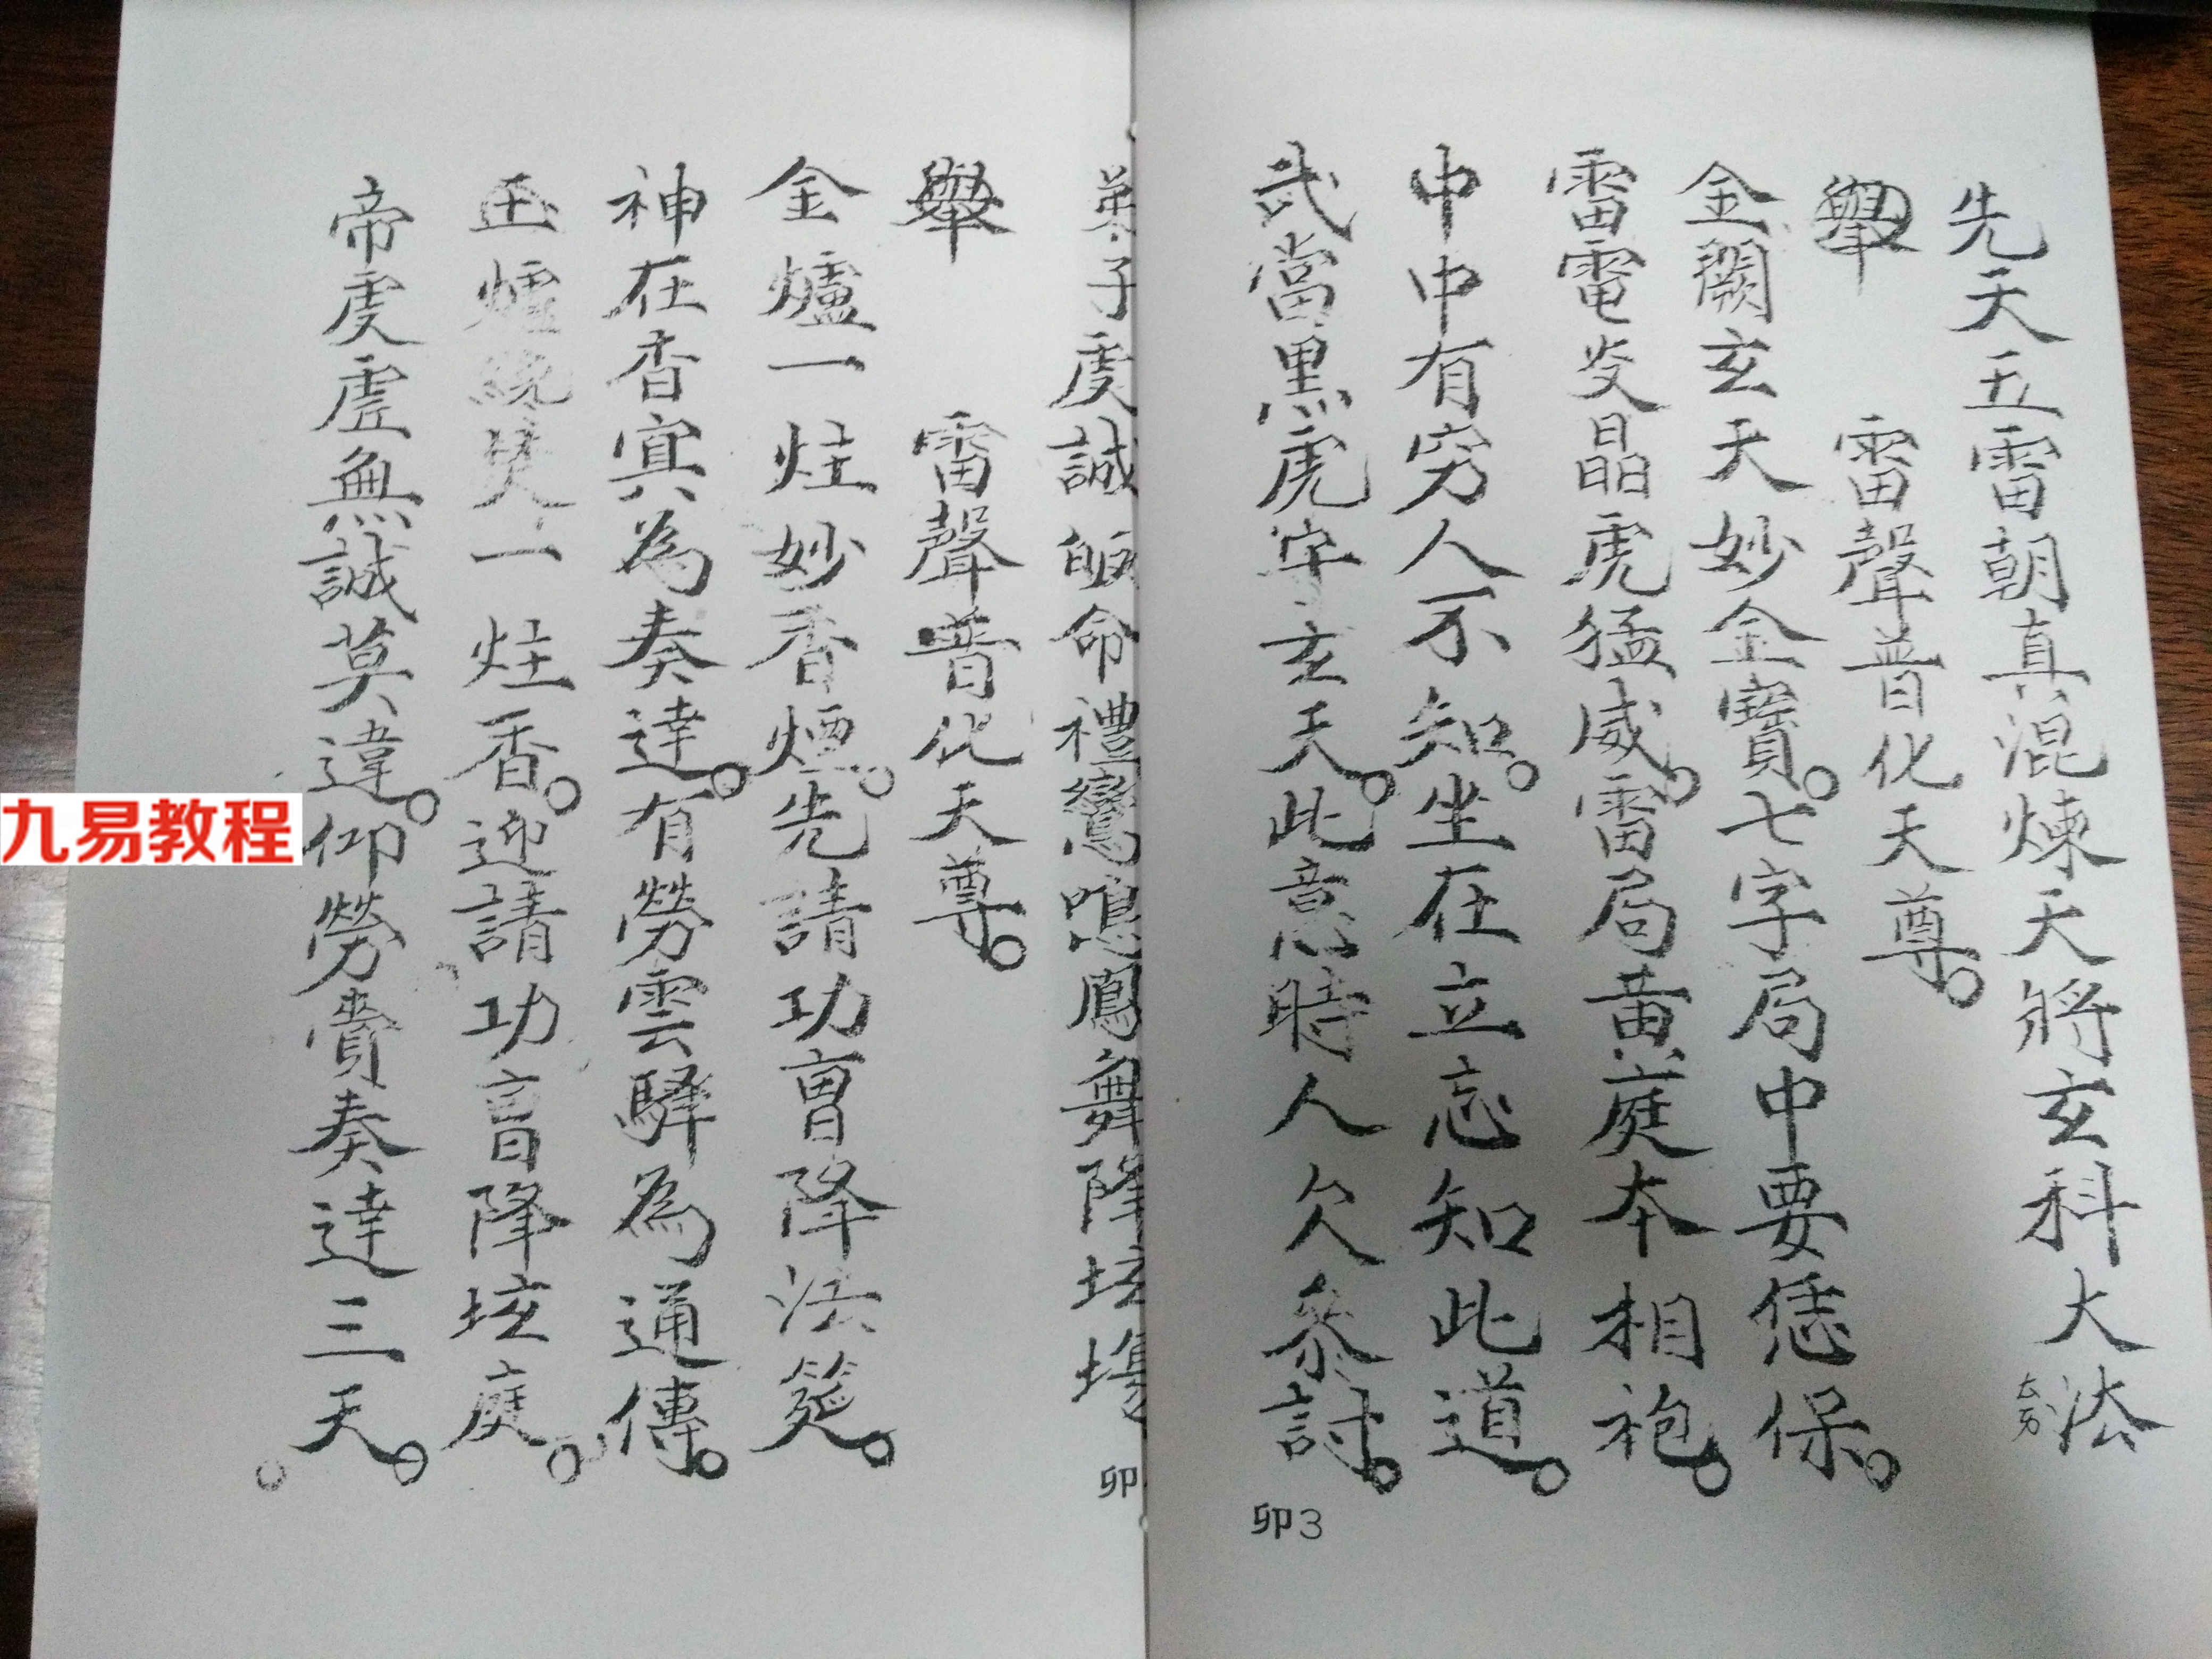 先天五雷朝真混煉天將玄科大法
舉 雷聲普化天尊。
金闕玄天妙金寶。七字局中要恁保。
雷電炎晶虎猛威。雷局黃庭本相袍。
中中有穷人不知。坐在立忘知此道。
武當黑虎字玄天。此意時人欠參討。
卯3
弟子虔誠皈命禮鸞鳴鳳舞降坛場
卯
舉 雷聲普化天尊。
金爐一炷妙香煙。先請功曹降法筵。
神在香冥為奏達。有勞雲驛為通傳。
玉爐一炷香。迎請功曹降坛庭。
帝虔虛無誠莫違。仰勞賫奏達三天。
九易教程